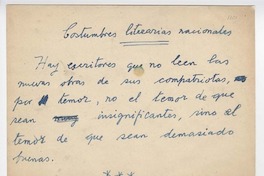 Costumbres literarias nacionales
Hay escritores que no leen las
nuevas obras de sus compatriotas,
por temor, no el temor de que
sean insignificantes, sino el
temor de que sean demasiado
buenas.
* * *